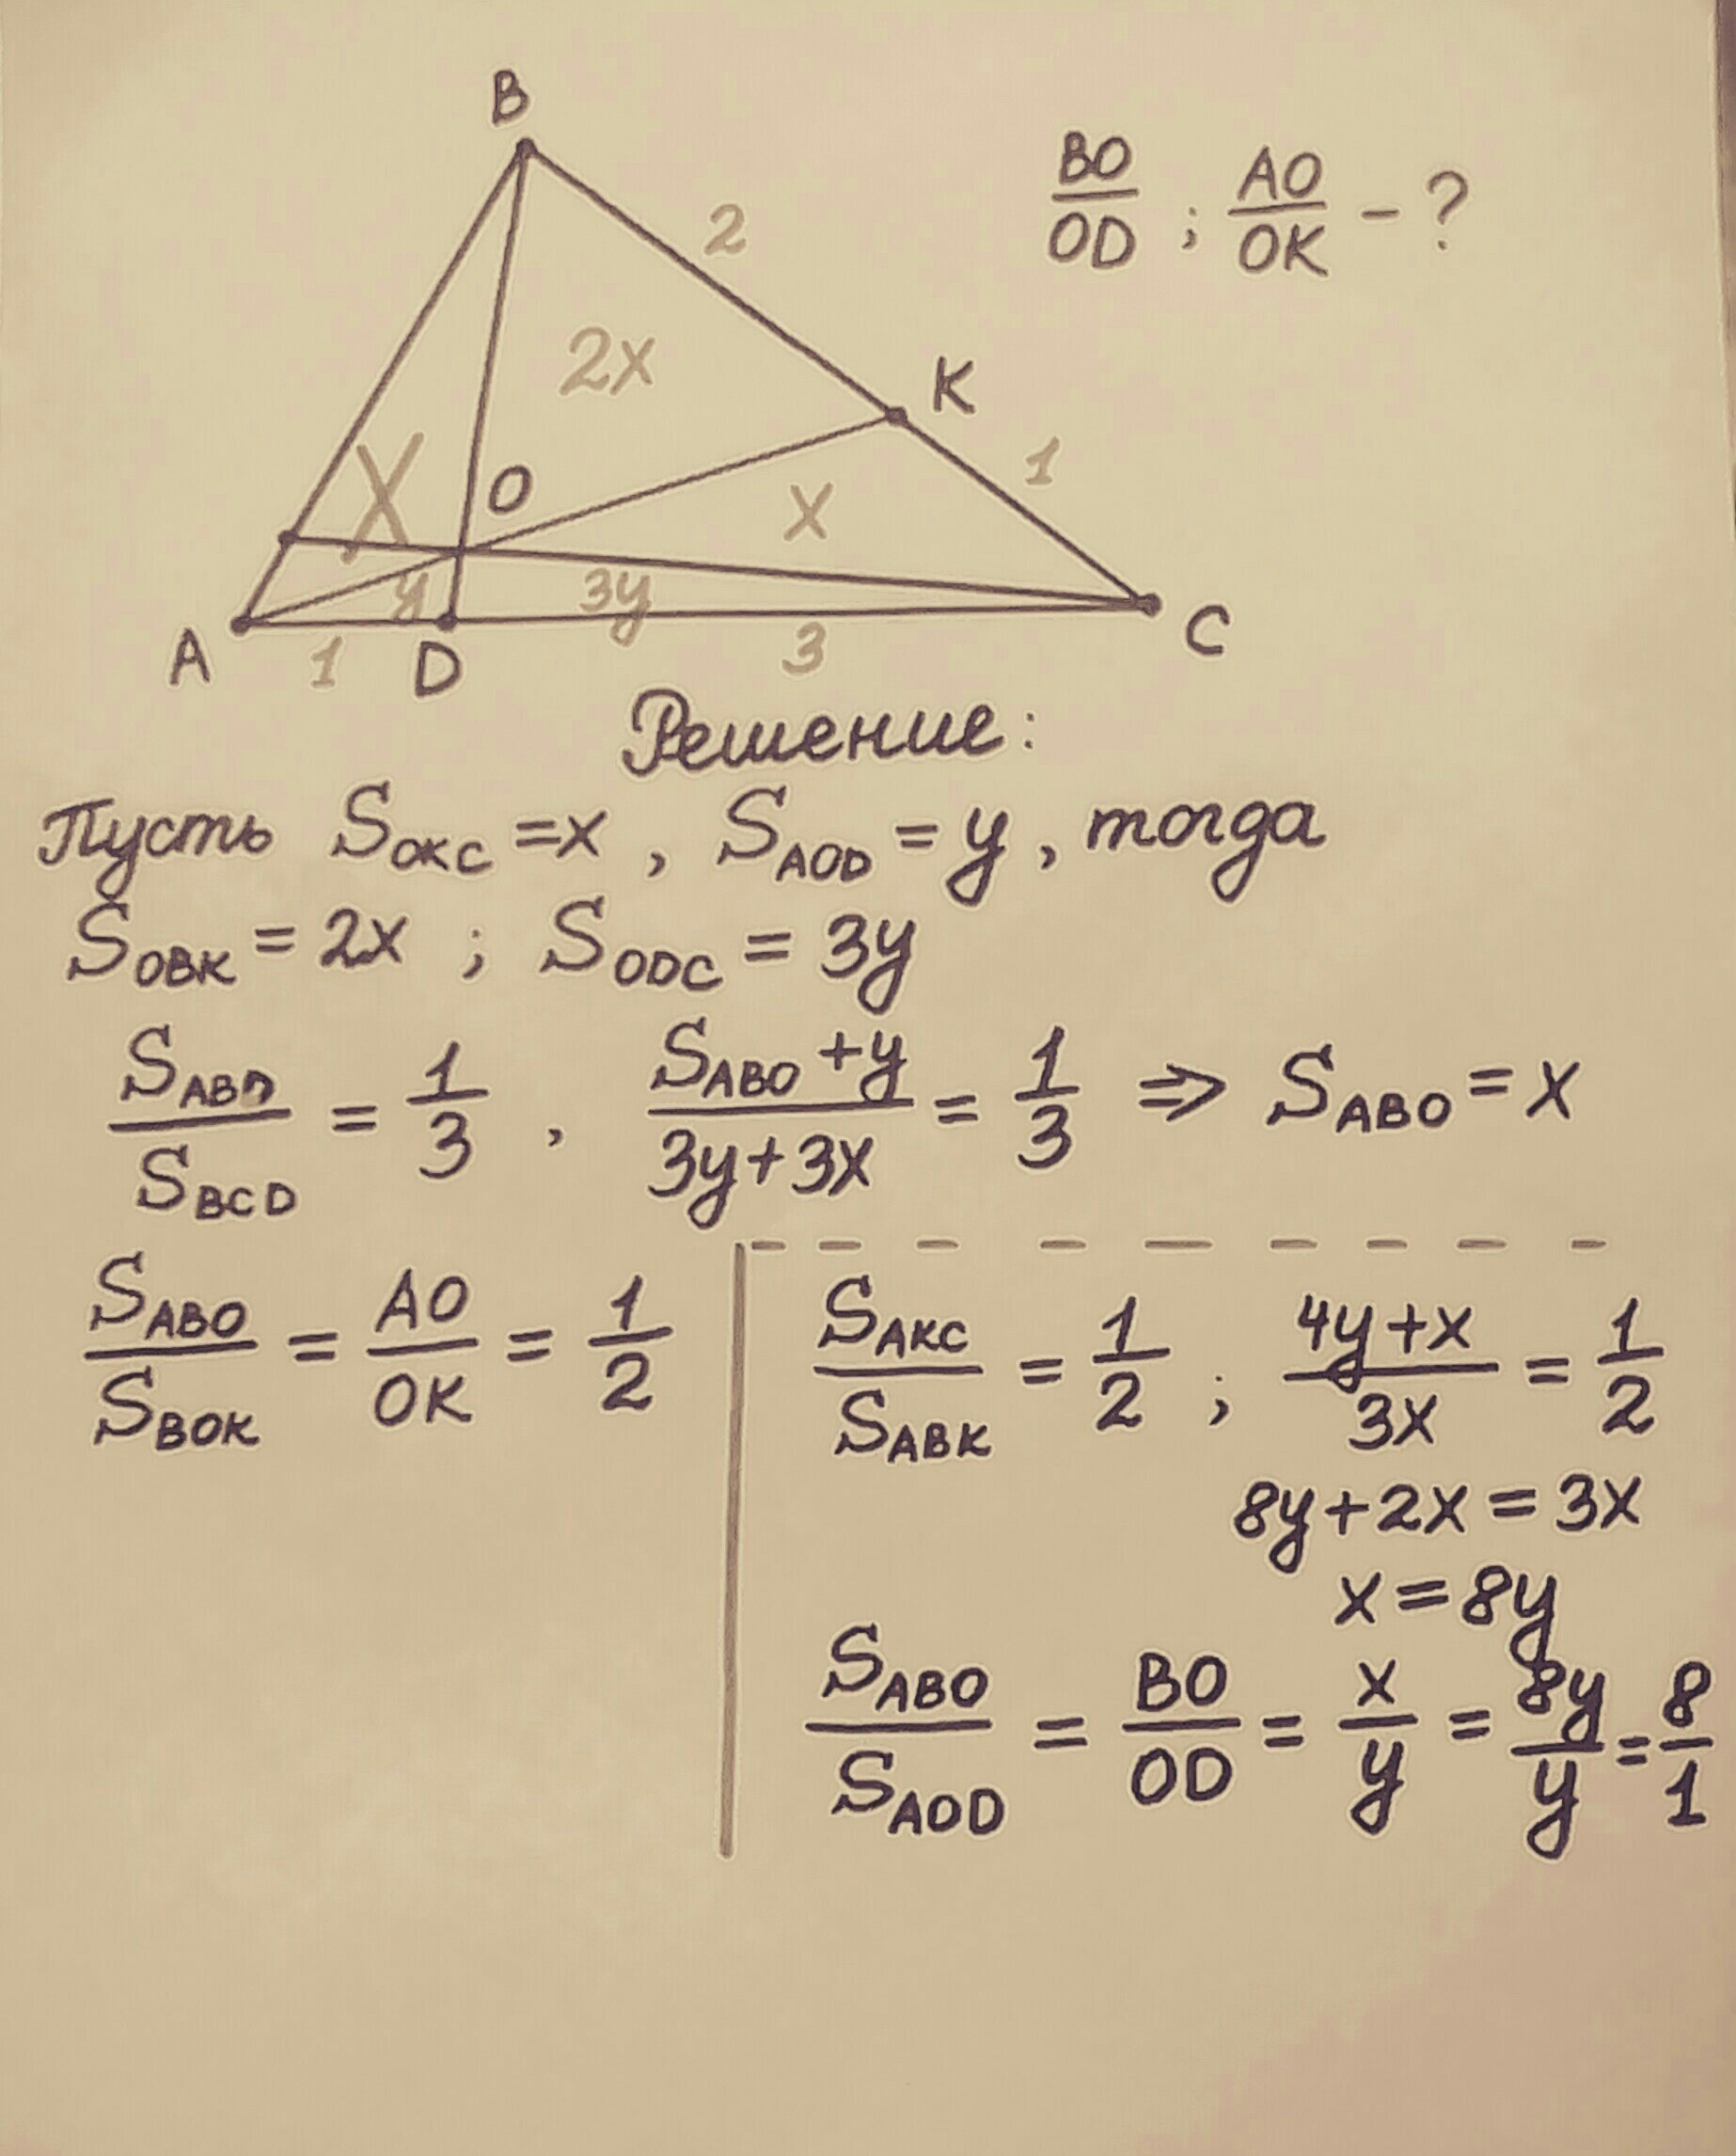 B
BO/OD ; AO/OK - ?
2
2x
K
X
O
x
1
y
3y
A
1
D
3
C
Решение:
Пусть S_OKC = x , S_AOD = y , тогда
S_OBK = 2x ; S_ODC = 3y
S_ABD/S_BCD = 1/3 , (S_ABO + y)/(3y + 3x) = 1/3 ⇒ S_ABO = x
S_ABO/S_BOK = AO/OK = 1/2
S_AKC/S_ABK = 1/2 ; (4y + x)/3x = 1/2
8y + 2x = 3x
x = 8y
S_ABO/S_AOD = BO/OD = x/y = 8y/y = 8/1